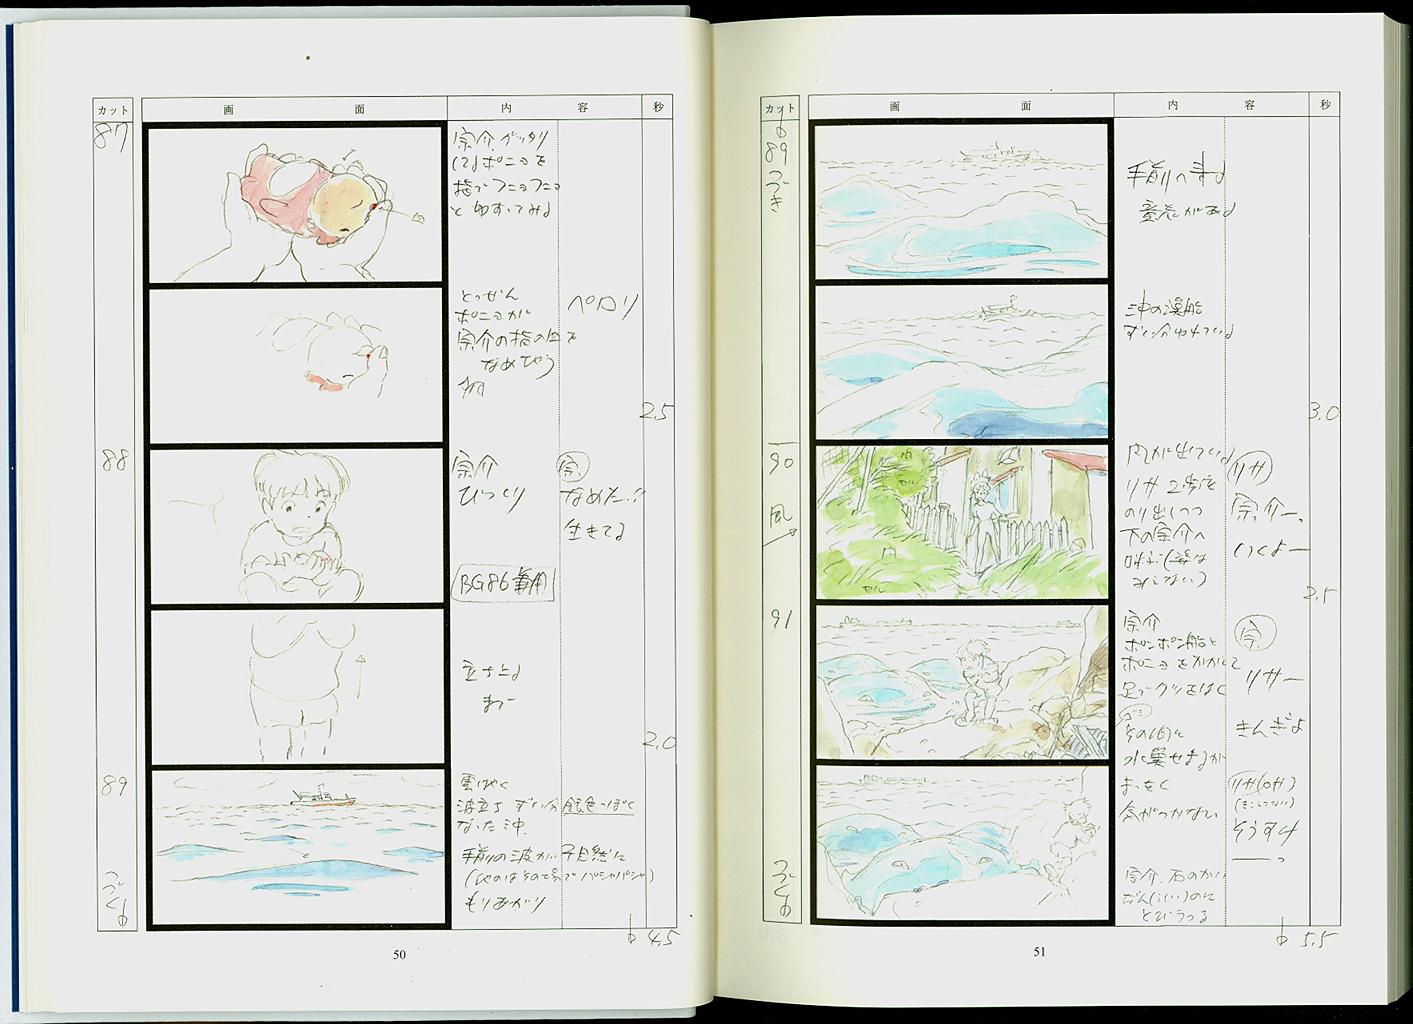 カット 画面 内容 秒
87
宗介 グッタリ
してるポニョを
指でフニョフニョ
とゆすってみる
とつぜん
ポニョが
宗介の指の血を
なめちゃう
ペロリ
2.5
88
宗介
びっくり
宗
なめた!!
生きてる
BG86兼用
立ち上る
2.0
89
雲はやく
波立ち ずい分鉛色っぽく
なった沖
手前の波が不自然に
もりあがり
つづく
4.5
50
カット 画面 内容 秒
89
つづき
手前へ来る
意志がある
沖の漁船
ずい分ゆれている
3.0
90
風
風が出ている
リサ
のり出しつつ
下の宗介へ
叫ぶ
リサ
宗介ー、
いくよー
2.5
91
宗介
ポンポン船と
ポニョをかかえて
足でクツをはく
宗
リサー
きんぎょ
その後に
水巣せまるが
まったく
気がつかない
リサ(OFF)
そうすけ
ー っ
宗介、石のかい
だん(らしい)のに
とびうつる
つづく
5.5
51